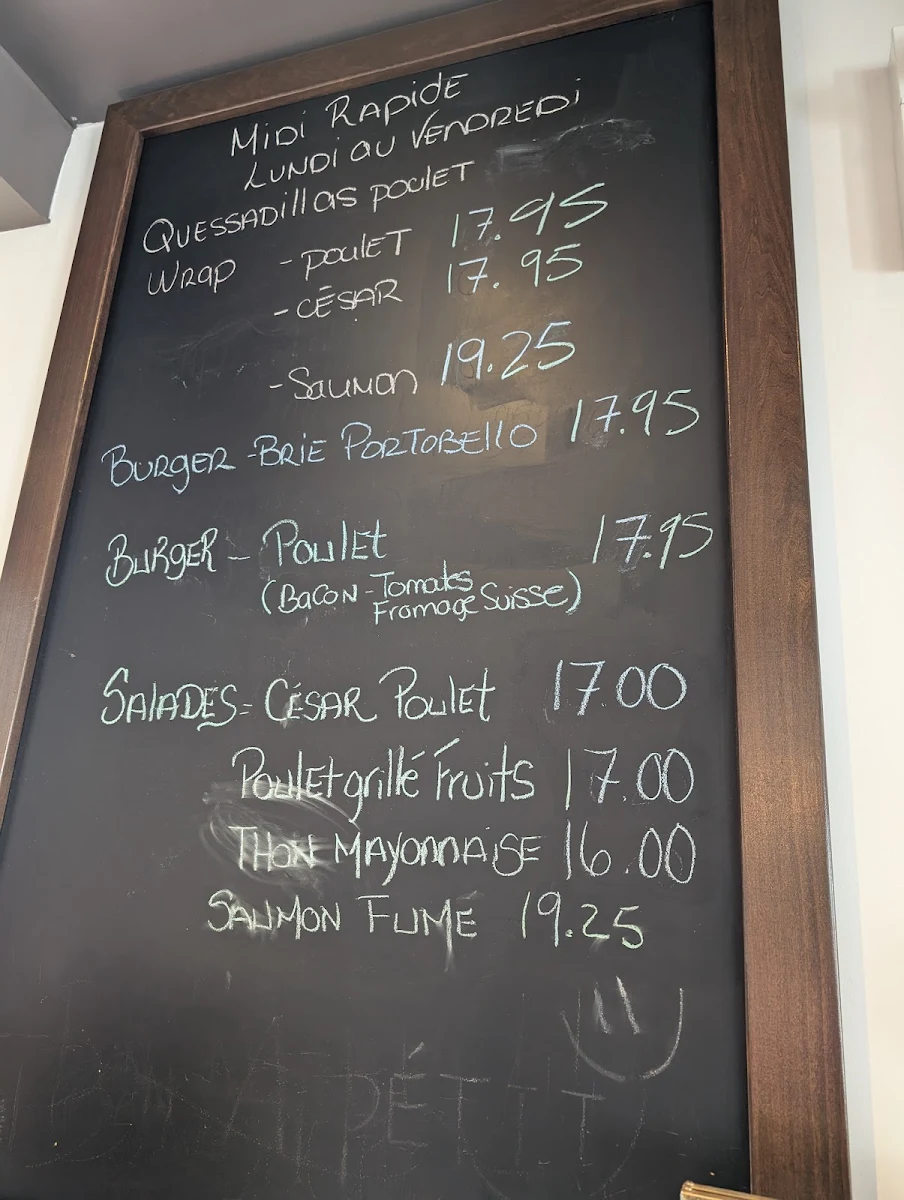 MIDI RAPIDE
LUNDI AU VENDREDI
QUESSADILLAS POULET
WRAP - POULET 17.95
- CÉSAR 17.95
- SAUMON 19.25
BURGER - BRIE PORTOBELLO 17.95
BURGER - POULET 17.95
(BACON - Tomates
Fromage Suisse)
SALADES = CÉSAR POULET 17.00
POULET grillé Fruits 17.00
THON MAYONNAISE 16.00
SAUMON FUMÉ 19.25
APÉTIT